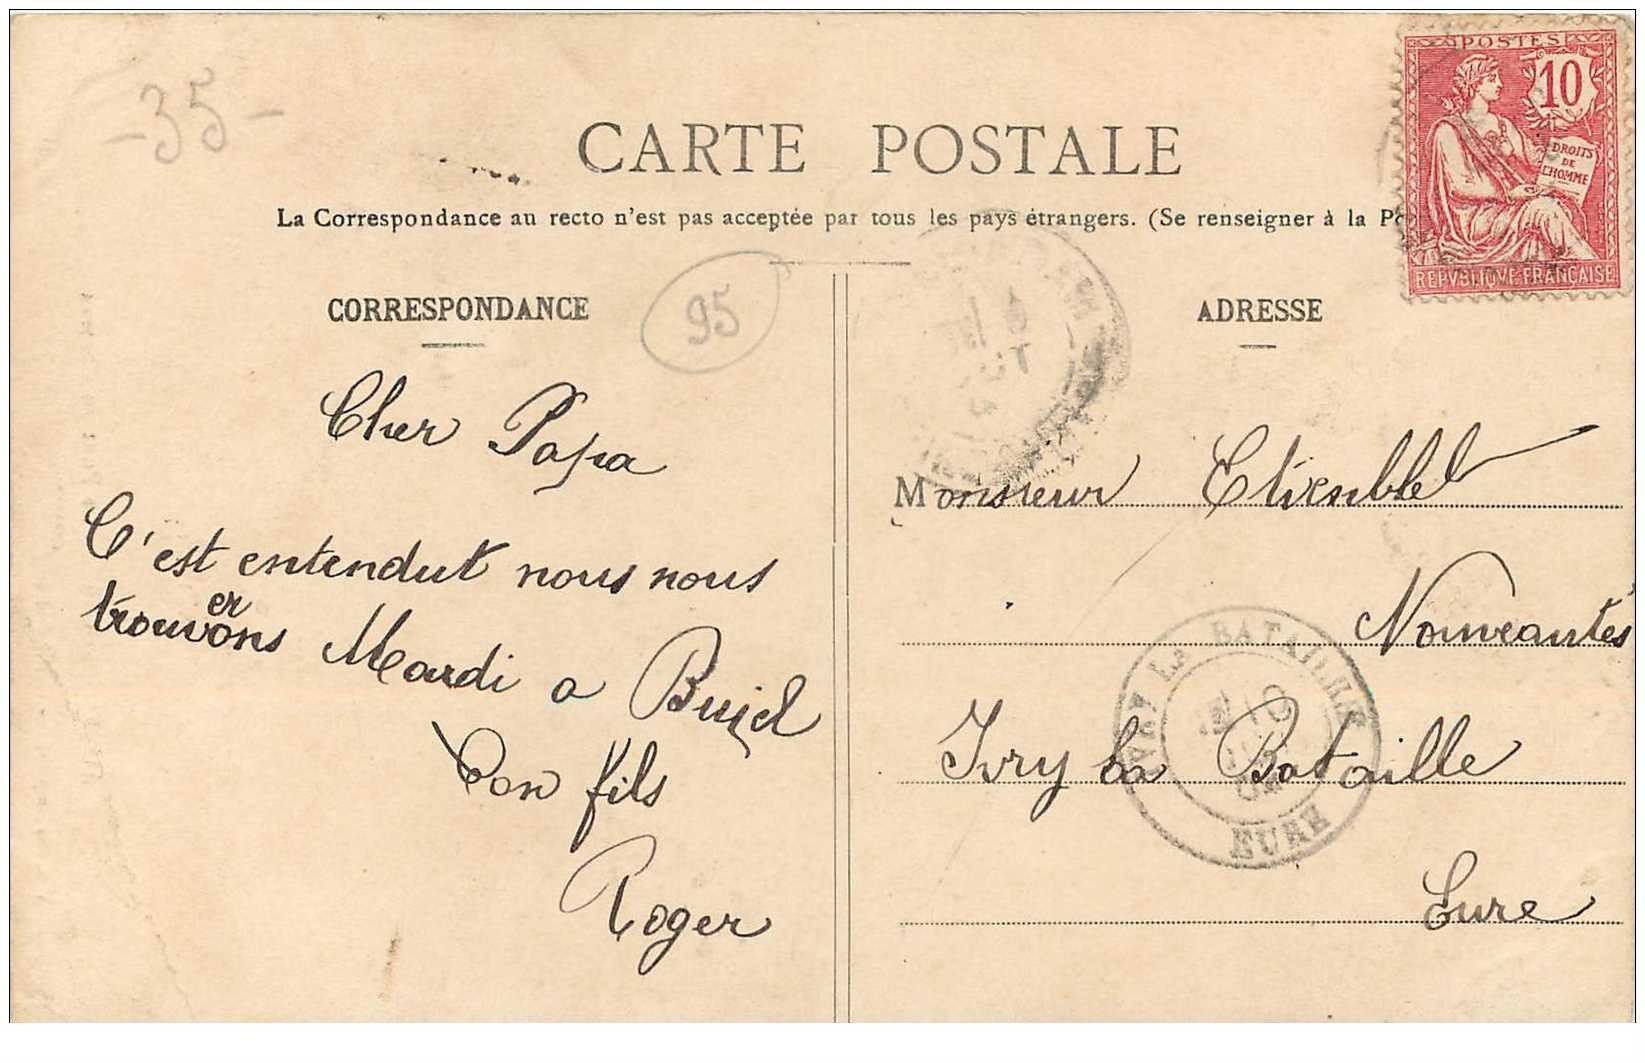 -35-
POSTES
10
DROITS
DE
L'HOMME
REPVBLIQVE FRANÇAISE
CARTE POSTALE
La Correspondance au recto n'est pas acceptée par tous les pays étrangers. (Se renseigner à la
CORRESPONDANCE
95
Cher Papa
C'est entendut nous nous
er
trouvons Mardi a Bueil
Ton fils
Roger
ADRESSE
Monsieur
Nouveautés
Ivry la Bataille
Eure
IVRY LA BATAILLE
EURE